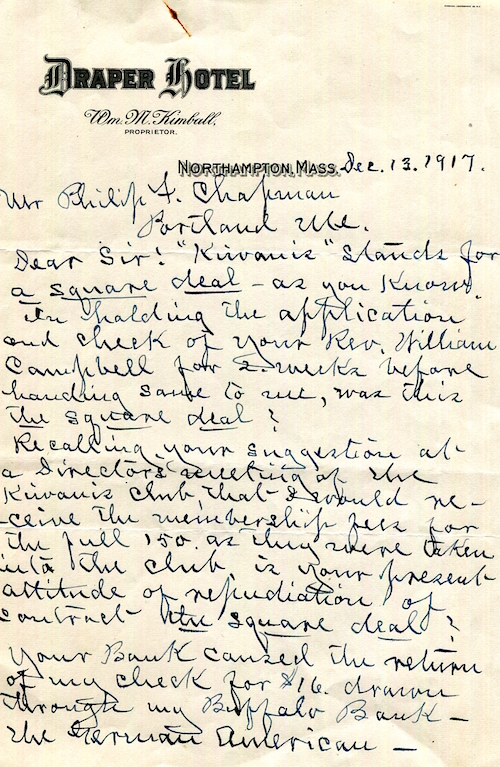 DRAPER HOTEL
Wm. M. Kimball,
PROPRIETOR.
NORTHAMPTON, MASS. Dec. 13. 1917.
Mr Philip F. Chapman
Portland Me.
Dear Sir! "Kiwanis" stands for
a square deal – as you know.
In holding the application
and check of your Rev. William
Campbell for 2. weeks before
handing same to me, was this
the square deal?
Recalling your suggestion at
a Directors meeting of the
Kiwanis Club that I would re-
-ceive the membership fees for
the full 150. as they were taken
into the club is your present
attitude of repudiation of
contract the square deal?
Your Bank caused the return
of my check for $16. drawn
through my Buffalo Bank –
the German American –